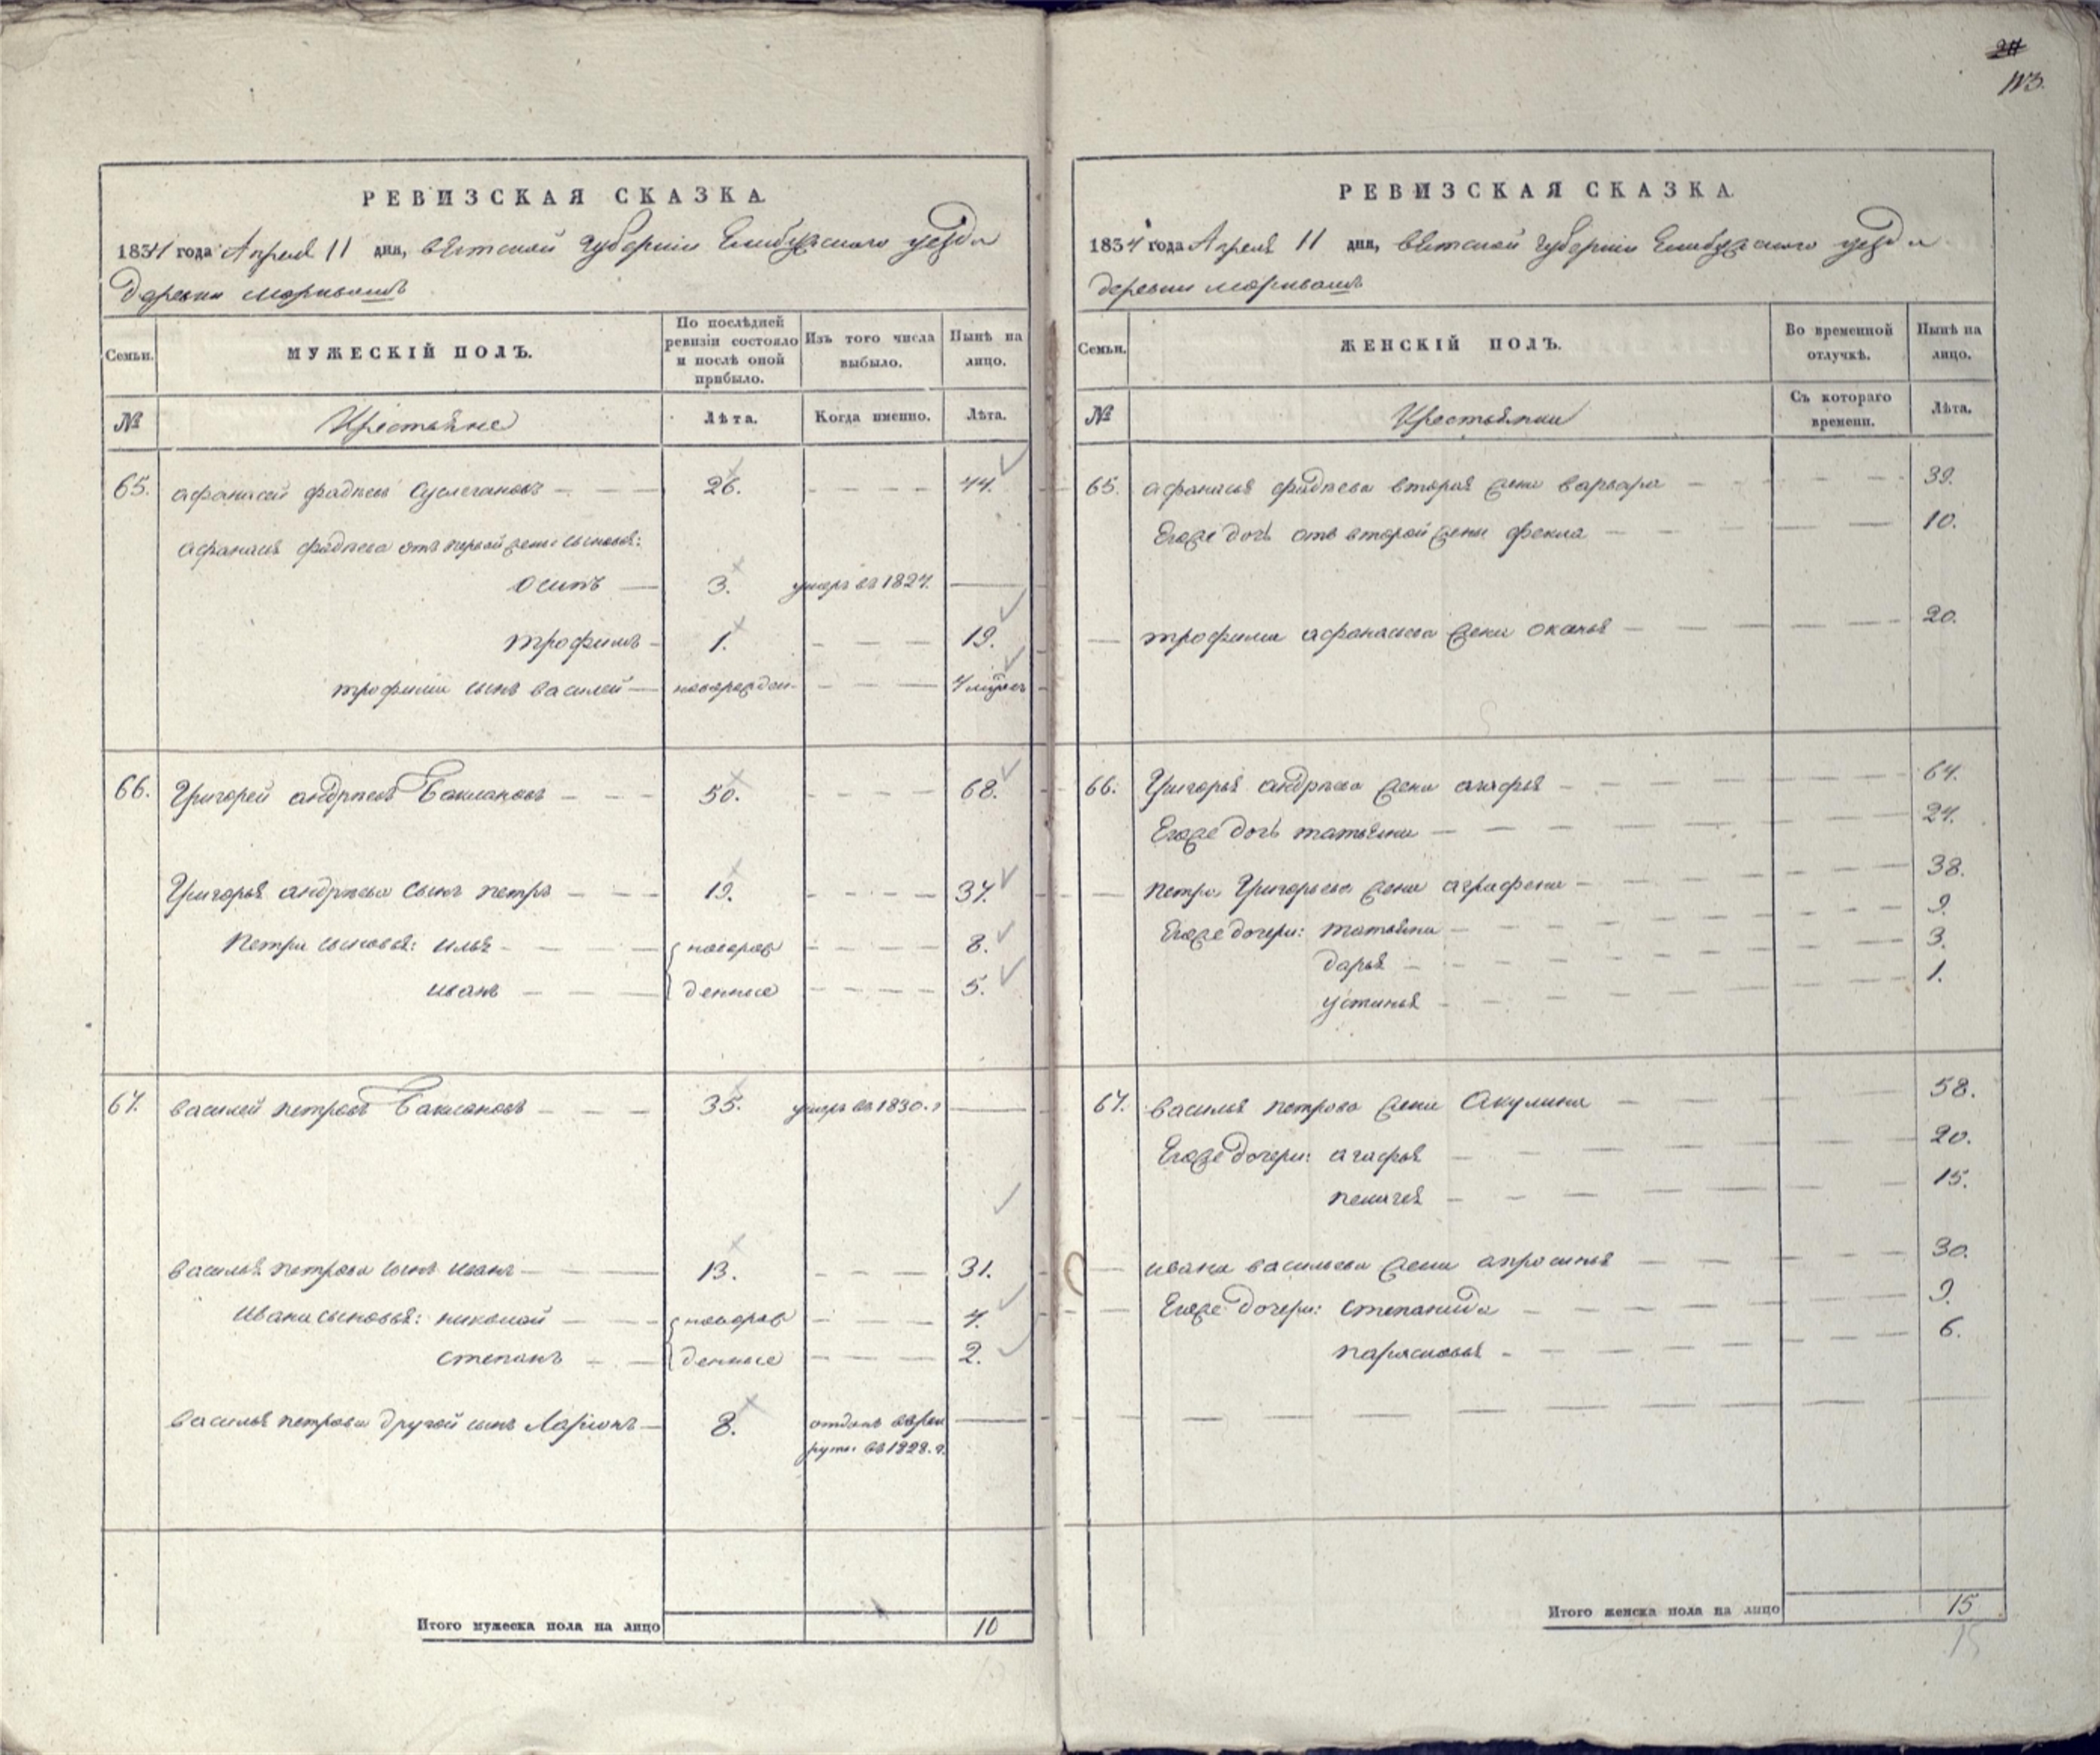 24
113.
РЕВИЗСКАЯ СКАЗКА.
1834 года Апреля 11 дня, вятской губернiи Елабужского уезда
деревни
Семьи.
МУЖЕСКIЙ ПОЛЪ.
По послѣдней ревизiи состояло и послѣ оной прибыло.
Изъ того числа выбыло.
Нынѣ на лицо.
№
Крестьяне
Лѣта.
Когда именно.
Лѣта.
65. афанасей фадѣевъ — — — 26. — — — — 44.
афанасья фадѣева отъ первой жены сыновья:
осипъ — 3. умеръ въ 1827. —
трофимъ — 1. — — — 19.
трофима сынъ василей — новорожден. — — — 7 мѣсяц
66. Григорей андрѣевъ Баклановъ — — — 50. — — — — 68.
Григорья андрѣева сынъ петръ — — — 19. — — — — 37.
Петра сыновья: илья — — — новорож — — — — 8.
иванъ — — — денные — — — — 5.
67. василей петровъ Баклановъ — — — 35. умеръ въ 1830. г —
василья петрова сынъ иванъ — — — 13. — — — 31.
ивана сыновья: николай — — — новорож — — — — 4.
степанъ — — денные — — — — 2.
василья петрова другой сынъ Ларiонъ — 8. отданъ въ рек —
руты въ 1828. г.
Итого мужеска пола на лицо 10
РЕВИЗСКАЯ СКАЗКА.
1834 года Апреля 11 дня, вятской губернiи Елабужского уезда
деревни
Семьи.
ЖЕНСКIЙ ПОЛЪ.
Во временной отлучкѣ.
Нынѣ на лицо.
№
Крестьянки
Съ котораго времени.
Лѣта.
65. афанасья фадѣева вторая жена варвара — — — — 39.
Егоже дочь отъ второй жены фекла — — — — 10.
— трофима афанасьева жена — — — — 20.
66. Григорья андрѣева жена агафья — — — — 64.
Егоже дочь татьяна — — — — 24.
— петра Григорьева жена аграфена — — — — 38.
Егоже дочери: татьяна — — — — 9.
дарья — — — — 3.
устинья — — — — 1.
67. василья петрова жена Акулина — — — — 58.
Егоже дочери: агафья — — — — 20.
пелагея — — — — 15.
— ивана васильева жена апросинья — — — — 30.
Егоже дочери: степанида — — — — 9.
парасковья — — — — 6.
Итого женска пола на лицо 15
15